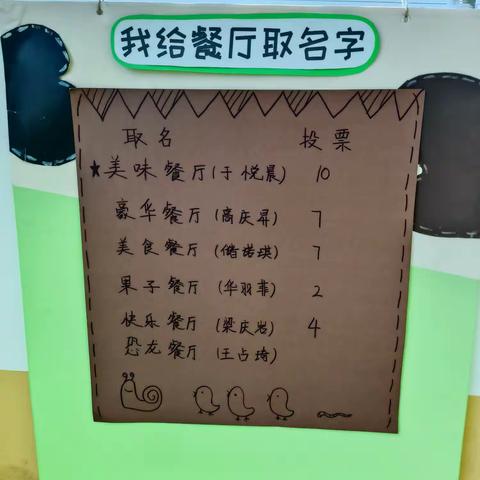 我给餐厅取名字
取名 投票
★美味餐厅(于悦晨) 10
豪华餐厅(高庆昇) 7
美食餐厅(储诺琪) 7
果子餐厅(华羽菲) 2
快乐餐厅(梁庆岩) 4
恐龙餐厅(王占琦)